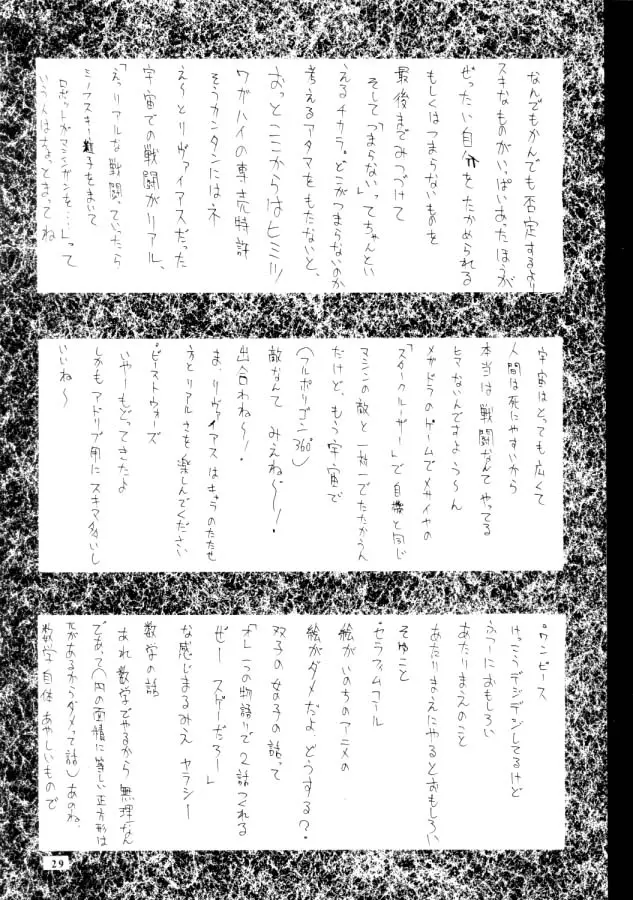 なんでもかんでも否定するより
スキなものがいっぱいあったほうが
ぜったい自分をたかめられる
もしくはつまらないものを
最後までみつづけて
そして「つまらない」ってちゃんとい
えるチカラ、どこがつまらないのか
考えるアタマをもたないと、
おっとここからはヒミツ
ワガハイの専売特許
そうカンタンにはネ
え〜とリヴァイアスだった
宇宙での戦闘がリアル、
「えっリアルな戦闘っていったら
ミノフスキー粒子をまいて
ロボットがマシンガンを…」って
いう人はちょっとまってね
宇宙はとっても広くて
人間は死にやすいから
本当は戦闘なんてやってる
ヒマないんですよ う〜ん
メガドラのゲームでメサイヤの
「スタークルーザー」で自機と同じ
マシンの敵と一対一でたたかうん
だけど、もう宇宙で
(フルポリゴン360°)
敵なんてみえね〜!
出合わね〜!
まぁリヴァイアスはキャラのたたせ
方とリアルさを楽しんでください
°ビーストウォーズ
いやーもどってきたよ
しかもアドリブ用にスキマ多いし
いいね〜
°ワンピース
けっこうデジデジしてるけど
ふつーにおもしろい
あたりまえのこと
あたりまえにやるとおもしろい
そゆこと
°セラフィムコール
絵がいのちのアニメの
絵がダメだよ、どうする?
双子の女の子の話って
「オレ一つの物語りで2話つくれる
ぜー スゲーだろー」
な感じまるみえ ヤラシー
数学の話
あれ数学でやるから無理なん
であって(円の面積に等しい正方形は
たがあるからダメって話)あのね、
数学自体あやしいもので
29